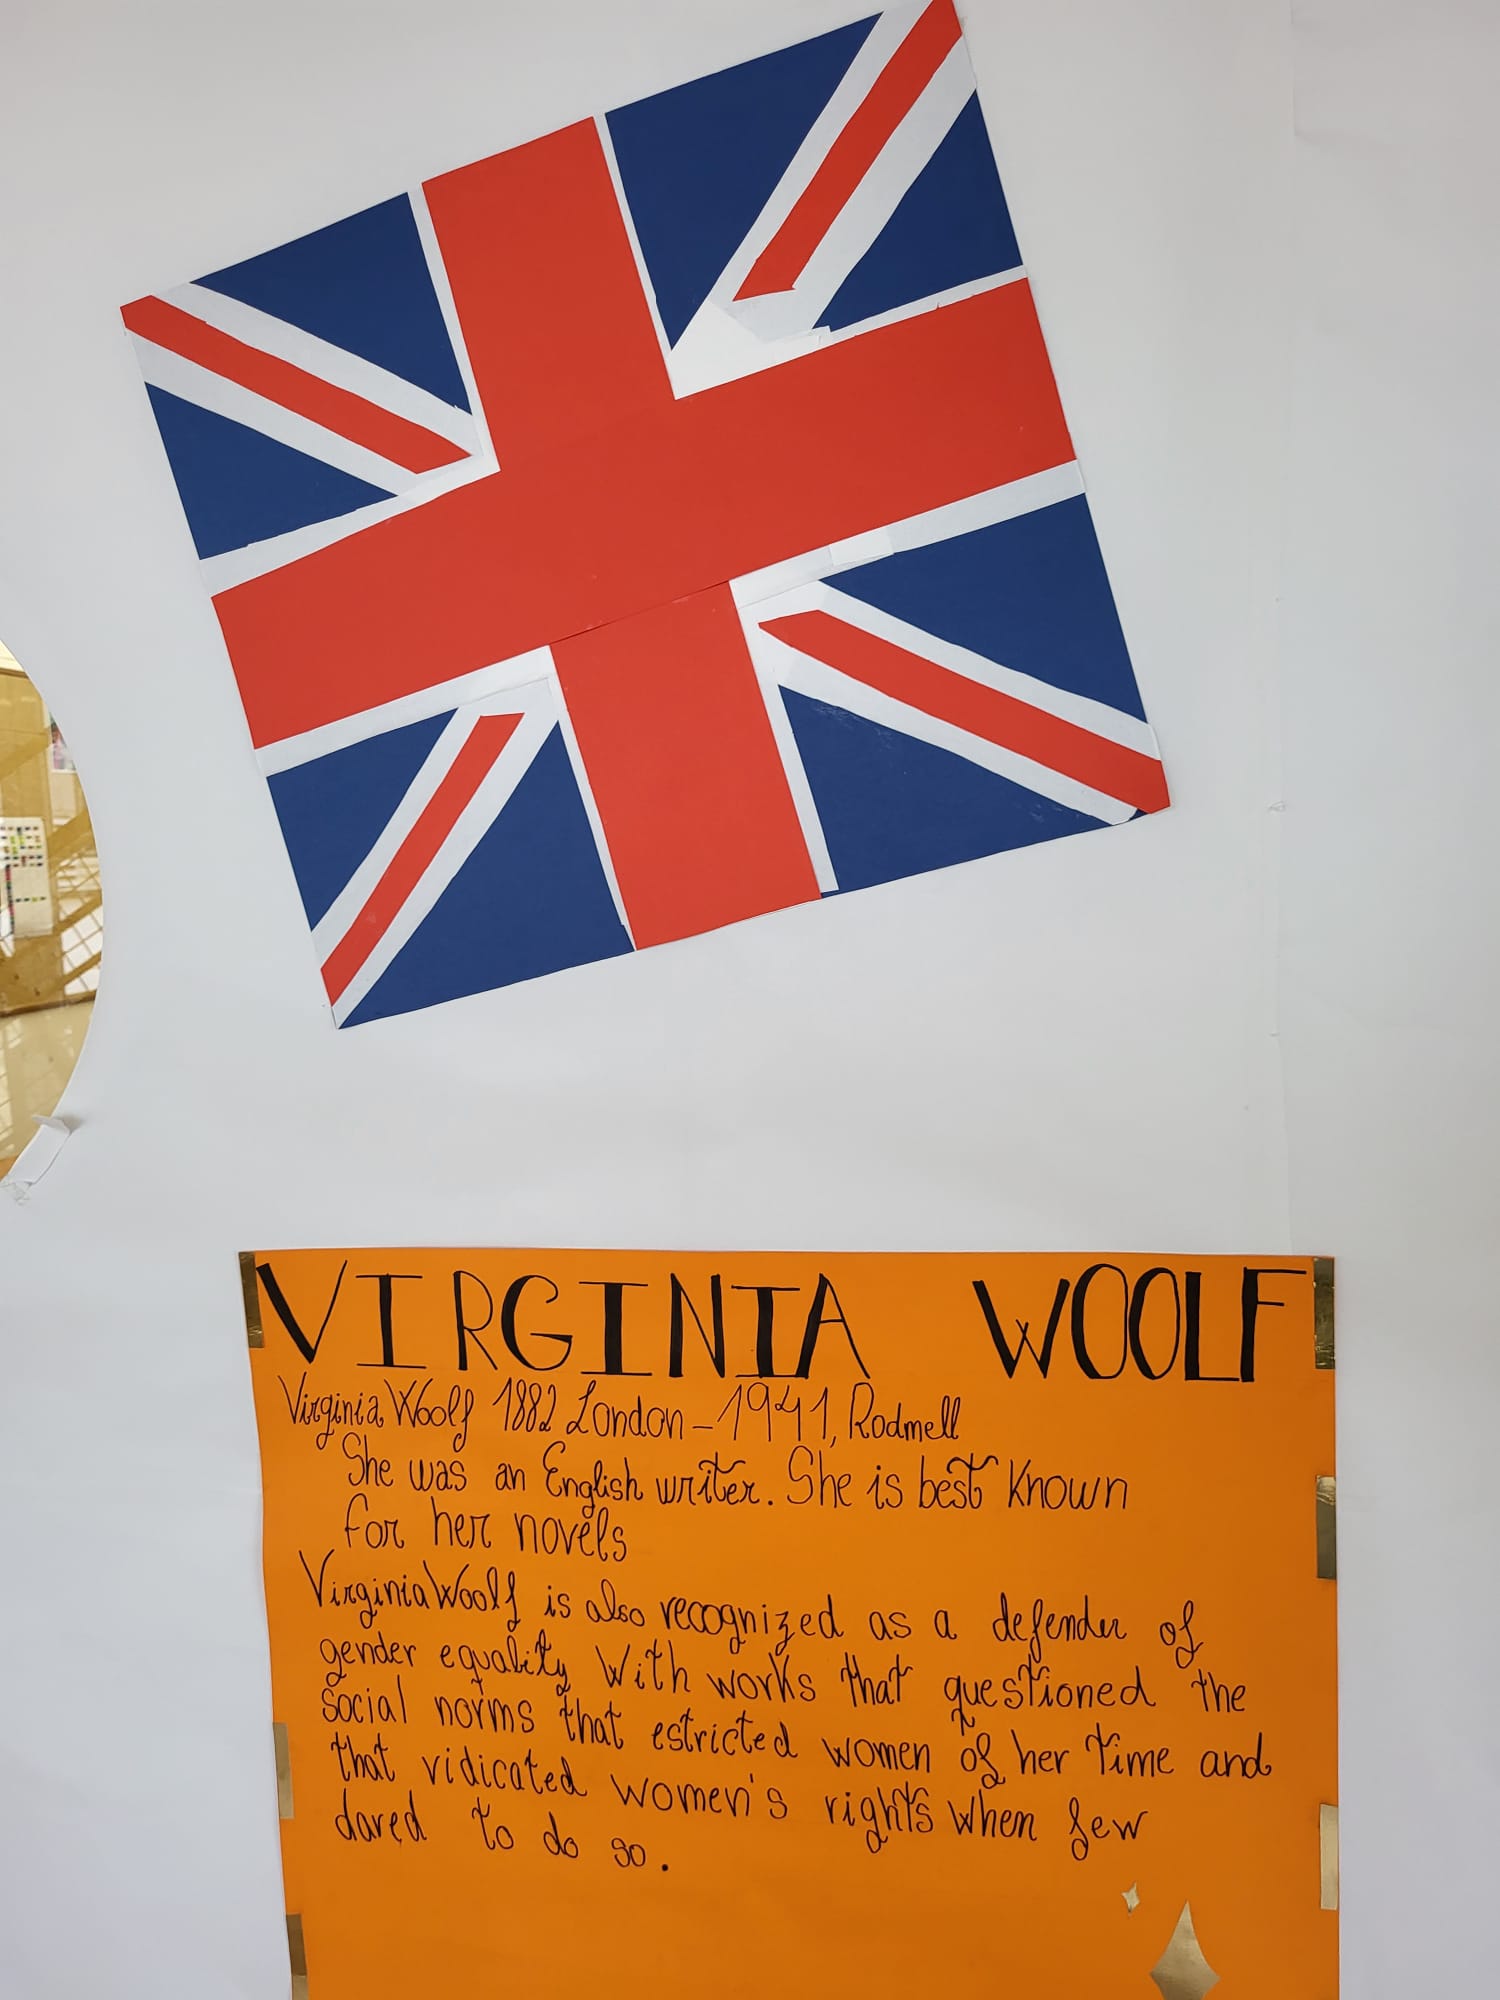 VIRGINIA WOOLF
Virginia Woolf 1882 London - 1941, Rodmell
She was an English writer. She is best known
for her novels
Virginia Woolf is also recognized as a defender of
gender equality with works that questioned the
social norms that estricted women of her time and
that vidicated women's rights when few
dared to do so.